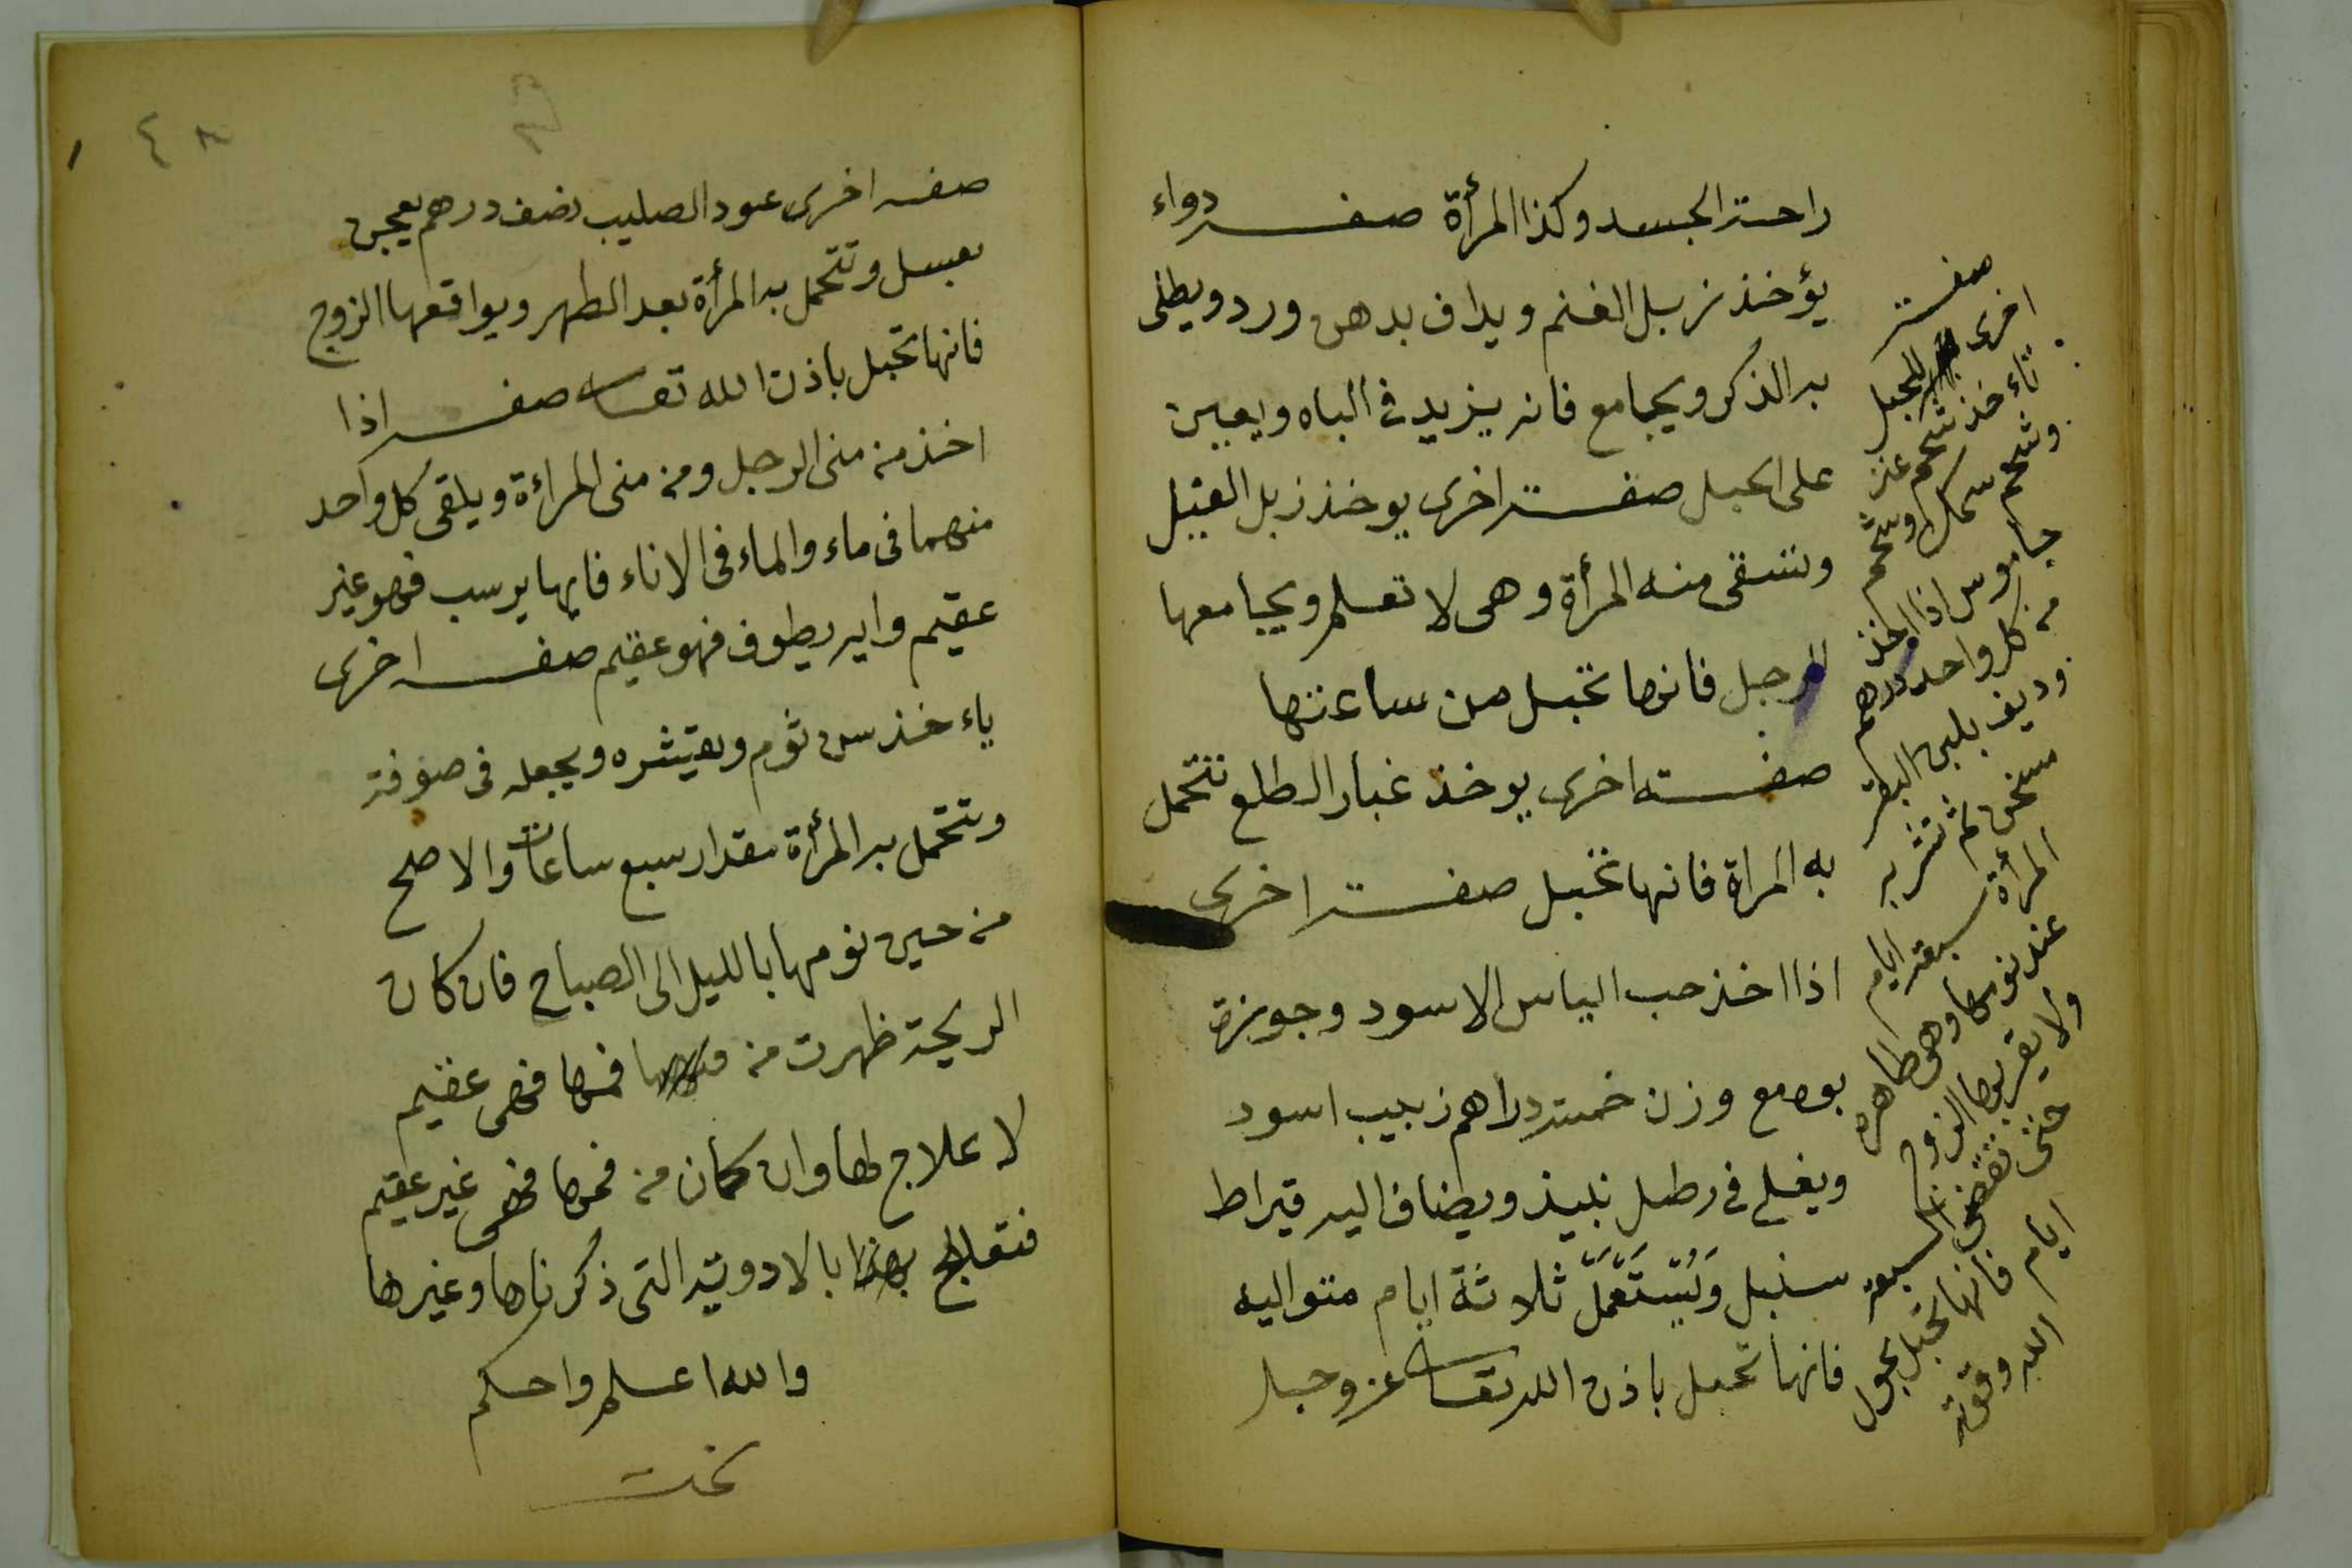 راحته الجسد وكذا المرأة صفه دواء
يؤخذ زبل الغنم ويداف بدهن ورد ويطلى
به الذكر ويجامع فانه يزيد فى الباه ويعين
على الحبل صفته اخرى يوخذ زبل الفيل
وتسقى منه المرأة وهى لا تعلم ويجامعها
الرجل فانها تحبل من ساعتها
صفته اخرى يوخذ غبار الطلع تتحمل
به المراة فانها تحبل صفته اخرى
اذا اخذ حب الياس الاسود وجوزة
بوا مع وزن خمسة دراهم زبيب اسود
ويغلى فى رطل نبيذ ويضاف اليه قيراط
سنبل ويستعمل ثلاثة ايام متواليه
فانها تحبل باذن الله تعالى عز وجل
صفته
اخرى للحبل
تاءخذ شحم عنز
وشحم سمك وشحم
جاموس اذا اخذ
من كل واحد درهم
وديف بلبن البقر
سخن ثم تشربه
المرأة سبعة ايام
عند نومها وهى طاهره
ولا يقربها الزوج
حتى تنقضى السبعة
ايام فانها تحبل بحول
الله وقوته
٤٨
صفه اخرى عود الصليب نصف درهم يعجن
بعسل وتتحمل به المرأة بعد الطهر ويواقعها الزوج
فانها تحبل باذن الله تعالى صفه اذا
اخذ من منى الرجل ومن منى المراءة ويلقى كل واحد
منهما فى ماء والماء فى الاناء فايها يرسب فهو غير
عقيم وايه يطوف فهو عقيم صفه اخرى
ياءخذ سن ثوم ويقشره ويجعله فى صوفة
وتتحمل به المرأة مقدار سبع ساعات والاصح
من حين نومها بالليل الى الصباح فان كان
الريحة ظهرت من فمها فهى عقيم
لا علاج لها وان كان من فمها فهى غير عقيم
فتعالج بهذا بالادوية التى ذكرناها وغيرها
والله اعلم واحكم
تمت